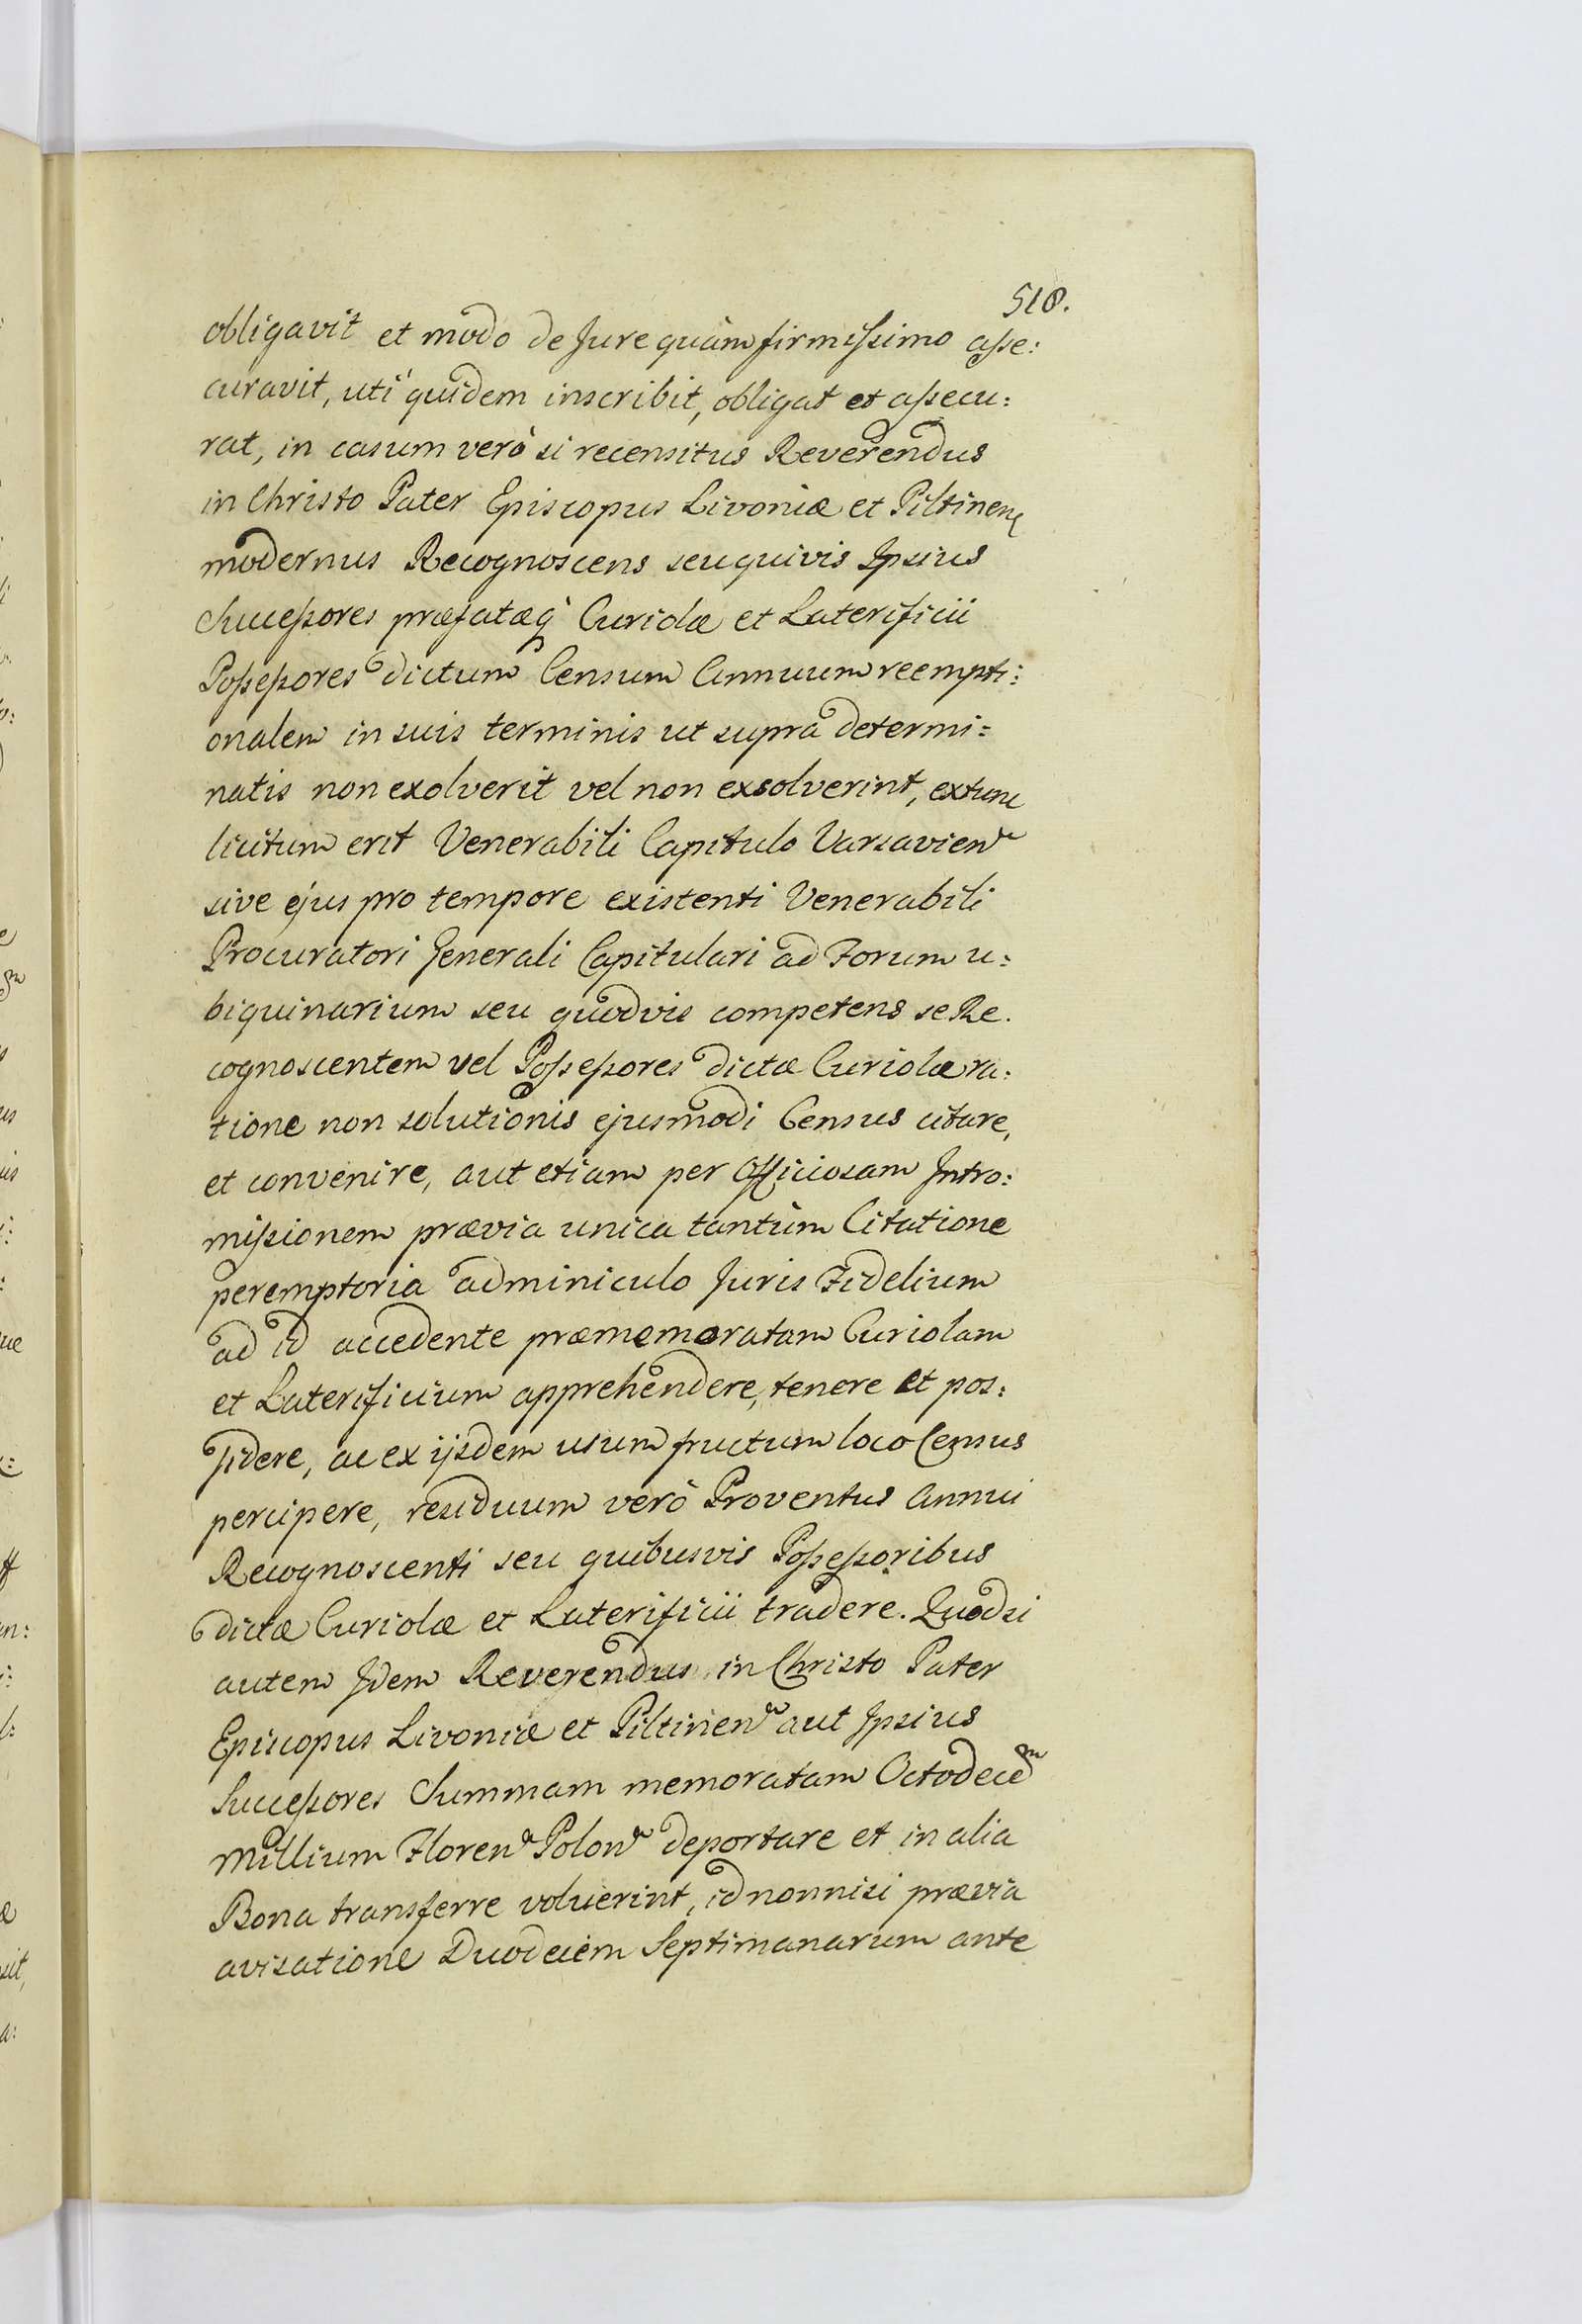 518.
obligavit et modo de Jure quàm firmissimo asse:
curavit, uti quidem inscribit, obligat et assecu:
rat, in casum verò si recensitus Reverendus
in Christo Pater Episcopus Livoniæ et Piltinen
modernus Recognoscens seu quivis Ipsius
Successores præfatæq Curiolæ et Laterificii
Possessores dictum Censum Annuum reempti:
onalem in suis terminis ut supra determi=
natis non exolverit vel non exsolverint, extunc
licitum erit Venerabili Capitulo Varsavien
sive ejus pro tempore existenti Venerabili
Procuratori Generali Capitulari ad Forum u:
biquinarium seu quodvis competens se Re.
cognoscentem vel Possessores dictæ Curiolæ ra:
tione non solutionis ejusmodi Census citare,
et convenire, aut etiam per Officiosam Intro:
missionem prævia unica tantùm Citatione
peremptoria adminiculo Juris Fidelium
ad id accedente præmemoratam Curiolam
et Laterificium apprehendere, tenere et pos:
sidere, ac ex ijsdem usum fructum loco Census
percipere, residuum verò Proventus Annui
Recognoscenti seu quibusvis Possessoribus
dictæ Curiolæ et Laterificii tradere. Quodsi
autem Idem Reverendus in Christo Pater
Episcopus Livoniæ et Piltinen aut Ipsius
Successores Summam memoratam Octodecem
Millium Floren Polon deportare et in alia
Bona transferre voluerint, id nonnisi prævia
avisatione Duodecim Septimanarum ante